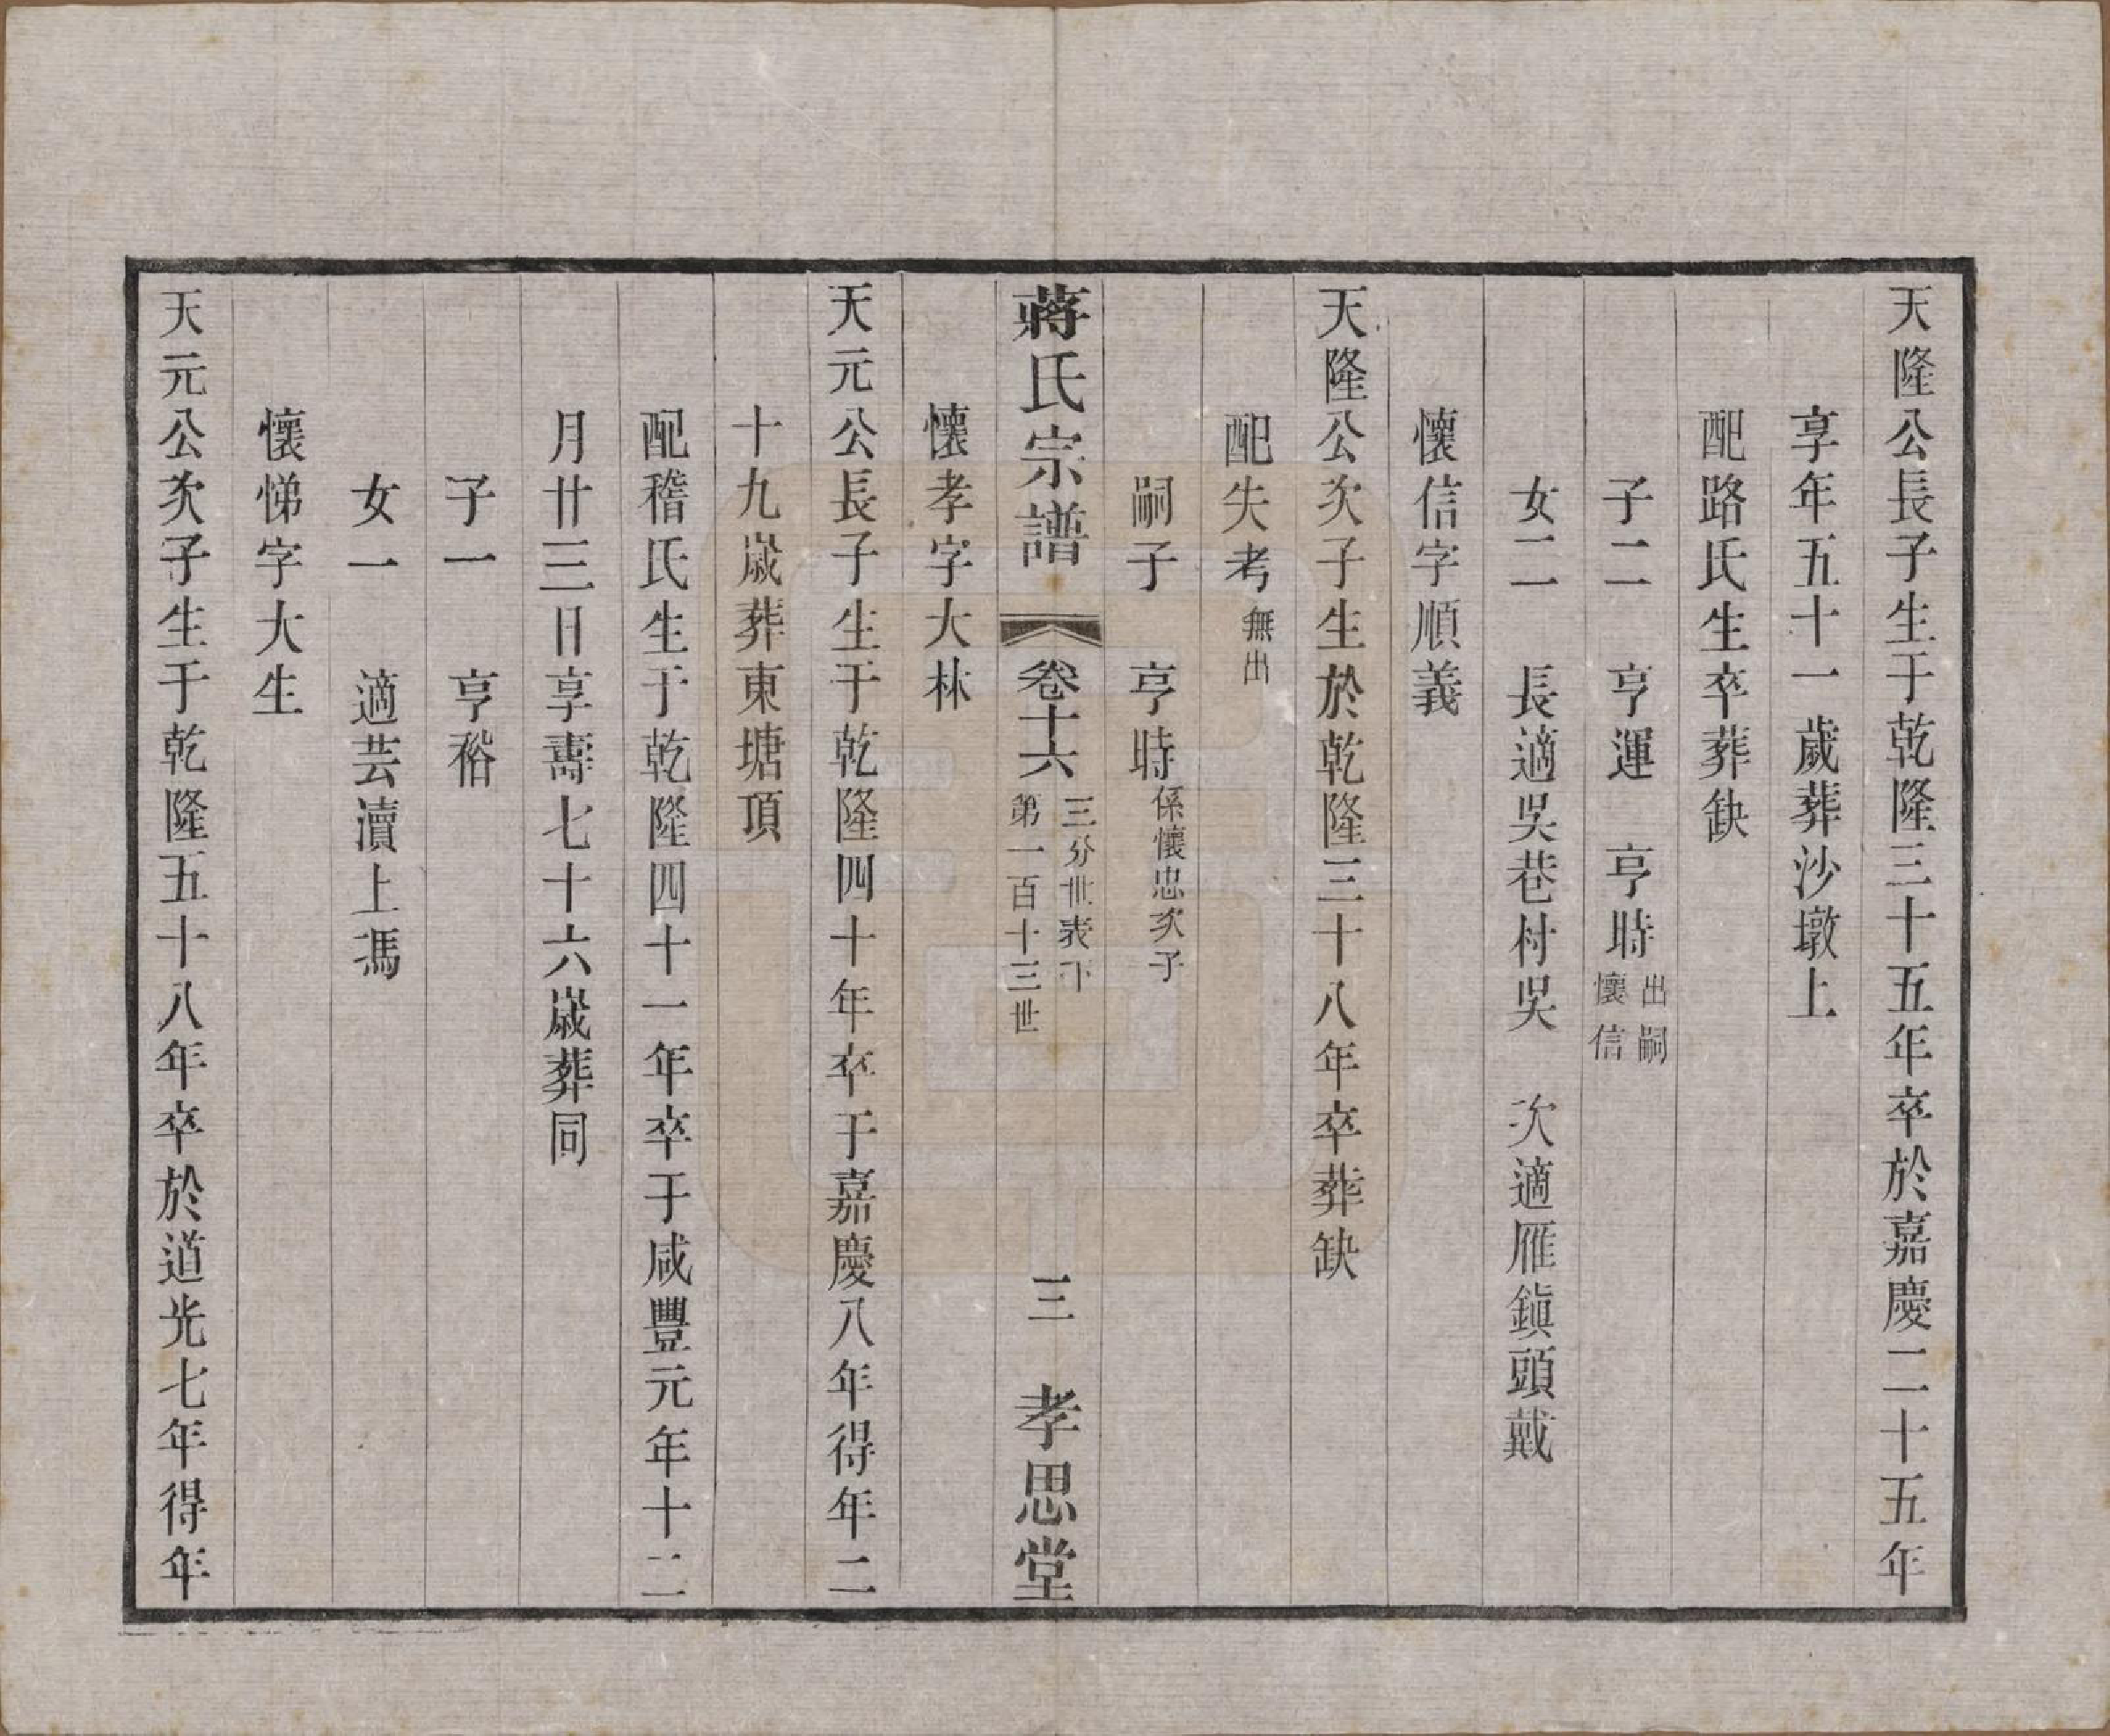 天隆公長子生于乾隆三十五年卒於嘉慶二十五年
享年五十一歲葬沙墩上
配路氏生卒葬缺
子二　亨運　亨時出嗣懷信
女二　長適吳巷村吳　次適雁鎮頭戴
懷信字順義
天隆公次子生於乾隆三十八年卒葬缺
配失考無出
嗣子　亨時係懷忠次子
蔣氏宗譜　卷十六　三分世表下　第一百十三世　三　孝思堂
懷孝字大林
天元公長子生于乾隆四十年卒于嘉慶八年得年二
十九歲葬東塘頂
配稽氏生于乾隆四十一年卒于咸豐元年十二
月廿三日享壽七十六歲葬同
子一　亨裕
女一　適芸瀆上馮
懷悌字大生
天元公次子生于乾隆五十八年卒於道光七年得年